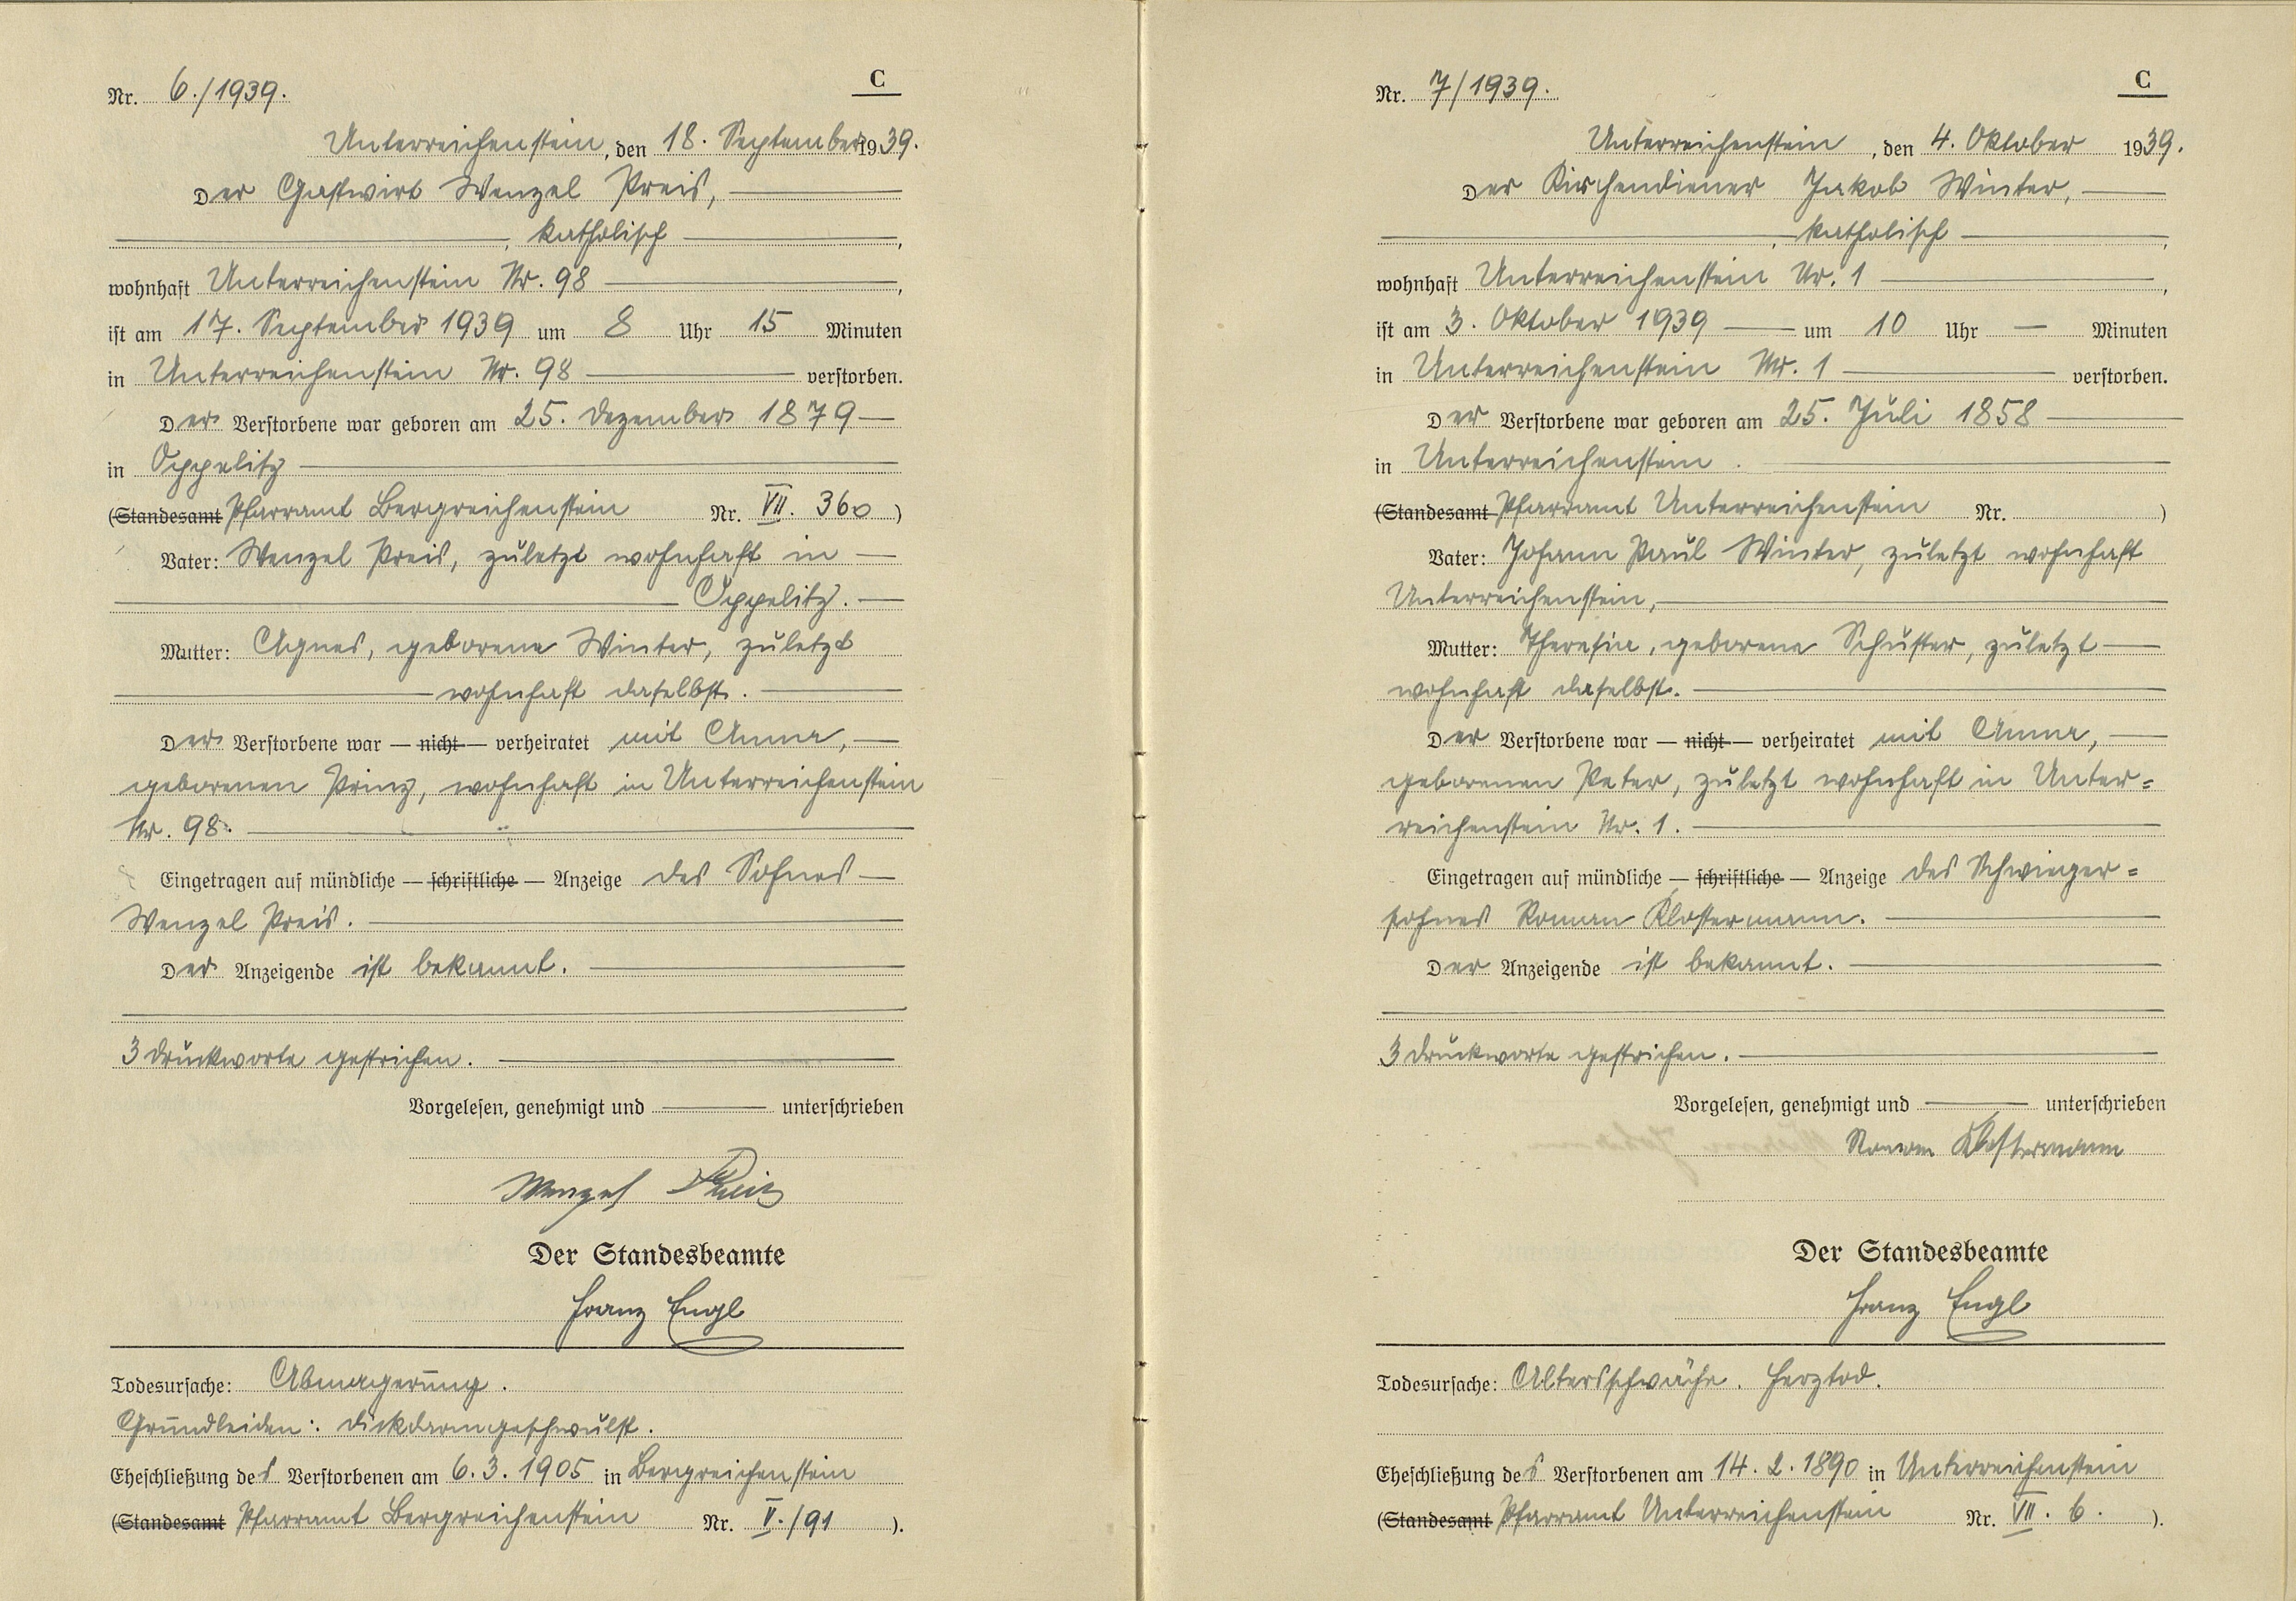 Nr. 6./1939.
C
Unterreichenstein, den 18. September 1939.
Der Gastwirt Wenzel Preis,
, katholisch ,
wohnhaft Unterreichenstein Nr. 98 ,
ist am 17. September 1939 um 8 Uhr 15 Minuten
in Unterreichenstein Nr. 98 verstorben.
Der Verstorbene war geboren am 25. Dezember 1879
in Oppelitz
(Standesamt Pfarramt Bergreichenstein Nr. VII. 360)
Vater: Wenzel Preis, zuletzt wohnhaft in
Oppelitz.
Mutter: Agnes, geborene Winter, zuletzt
wohnhaft daselbst.
Der Verstorbene war — nicht — verheiratet mit Anna,
geborenen Prinz, wohnhaft in Unterreichenstein
Nr. 98.
Eingetragen auf mündliche — schriftliche — Anzeige des Sohnes
Wenzel Preis.
Der Anzeigende ist bekannt.
3 Druckworte gestrichen.
Vorgelesen, genehmigt und unterschrieben
Wenzel Preis
Der Standesbeamte
Franz Engl
Todesursache: Abmagerung.
Grundleiden: Dickdarmgeschwulst.
Eheschließung des Verstorbenen am 6.3.1905 in Bergreichenstein
(Standesamt Pfarramt Bergreichenstein Nr. V./91).
Nr. 7/1939.
C
Unterreichenstein, den 4. Oktober 1939.
Der Kirchendiener Jakob Winter,
, katholisch ,
wohnhaft Unterreichenstein Nr. 1 ,
ist am 3. Oktober 1939 — um 10 Uhr — Minuten
in Unterreichenstein Nr. 1 verstorben.
Der Verstorbene war geboren am 25. Juli 1858
in Unterreichenstein.
(Standesamt Pfarramt Unterreichenstein Nr. )
Vater: Johann Paul Winter, zuletzt wohnhaft
Unterreichenstein,
Mutter: Theresia, geborene Schuster, zuletzt
wohnhaft daselbst.
Der Verstorbene war — nicht — verheiratet mit Anna,
geborenen Peter, zuletzt wohnhaft in Unter=
reichenstein Nr. 1.
Eingetragen auf mündliche — schriftliche — Anzeige des Schwieger=
sohnes Roman Klostermann.
Der Anzeigende ist bekannt.
3 Druckworte gestrichen.
Vorgelesen, genehmigt und unterschrieben
Roman Klostermann
Der Standesbeamte
Franz Engl
Todesursache: Altersschwäche. Herztod.
Eheschließung des Verstorbenen am 14.2.1890 in Unterreichenstein
(Standesamt Pfarramt Unterreichenstein Nr. VII. 6. ).